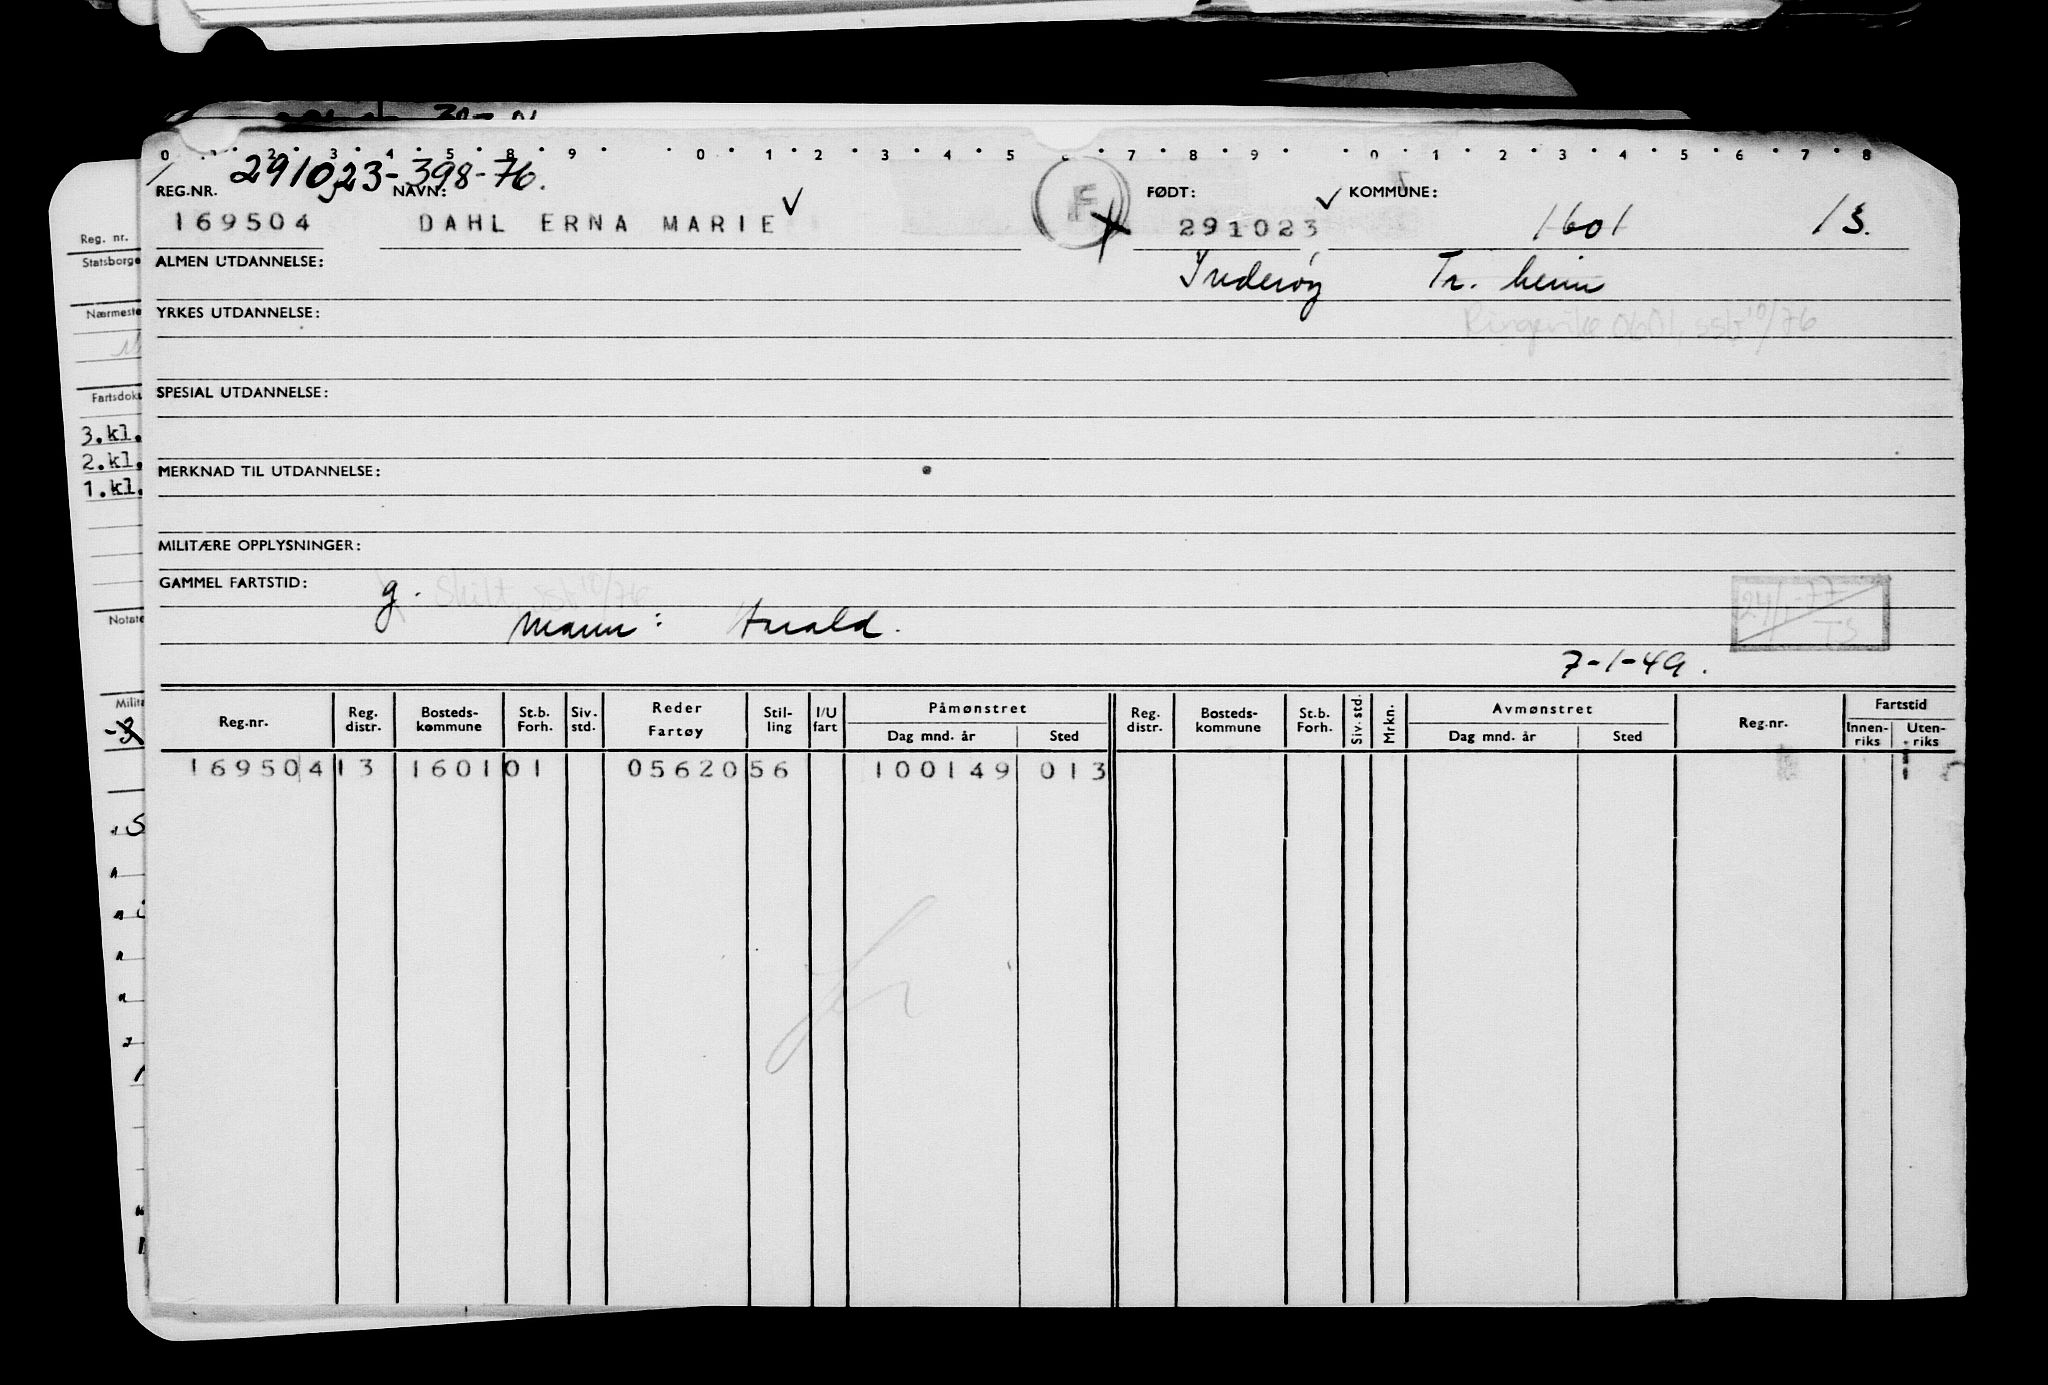 0 1 2 3 4 5 8 9 0 1 2 3 4 5 6 7 8 9 0 1 2 3 4 5 6 7 8
291023-398-76.
REG.NR. NAVN: F FØDT: KOMMUNE:
169504 DAHL ERNA MARIE 291023 1601 13.
ALMEN UTDANNELSE: Inderøy Tr. heim
YRKES UTDANNELSE: Ringerike 0601, ssb 10/76
SPESIAL UTDANNELSE:
MERKNAD TIL UTDANNELSE:
MILITÆRE OPPLYSNINGER:
GAMMEL FARTSTID: g. Skilt ssb 10/76
24/1-77 TS
Mann: Harald.
7-1-49.
Reg.nr. Reg. distr. Bosteds-kommune St.b. Forh. Siv. std. Reder Fartøy Stil-ling I/U fart Påmønstret Dag mnd. år Sted Reg. distr. Bosteds-kommune St.b. Forh. Siv. std. Mrkn. Avmønstret Dag mnd. år Sted Reg.nr. Fartstid Innen-riks Uten-riks
169504 13 1601 01 05620 56 100149 013
Reg. nr.
Statsborge
Nærmeste
Fartsdoku
3.kl.
2.kl.
1.kl.
Notate
Milit